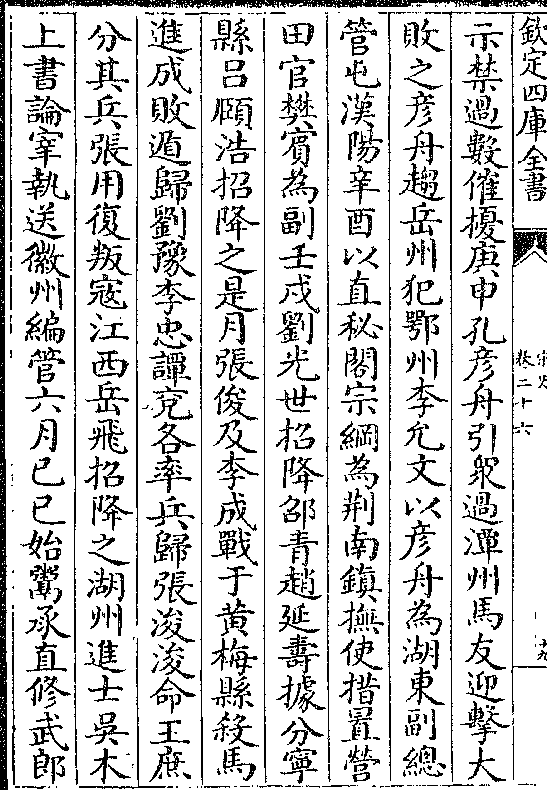 欽定四庫全書
宋史
卷二十六
十九
示禁過數催擾庚申孔彥舟引衆過潭州馬友迎擊大
敗之彥舟趨岳州犯鄂州李允文以彥舟為湖東副總
管屯漢陽辛酉以直秘閣宗綱為荆南鎮撫使措置營
田官樊賓為副壬戌劉光世招降邵青趙延壽據分寧
縣呂頤浩招降之是月張俊及李成戰于黄梅縣殺馬
進成敗遁歸劉豫李忠譚兖各率兵歸張浚浚命王庶
分其兵張用復叛寇江西岳飛招降之湖州進士吳木
上書論宰執送徽州編管六月己巳始鬻承直修武郎